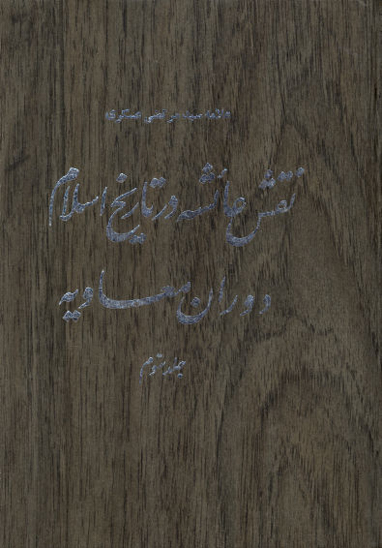 علامه سید مرتضی عسکری
نقش عائشه در تاریخ اسلام
دوران معاویه
جلد سوم